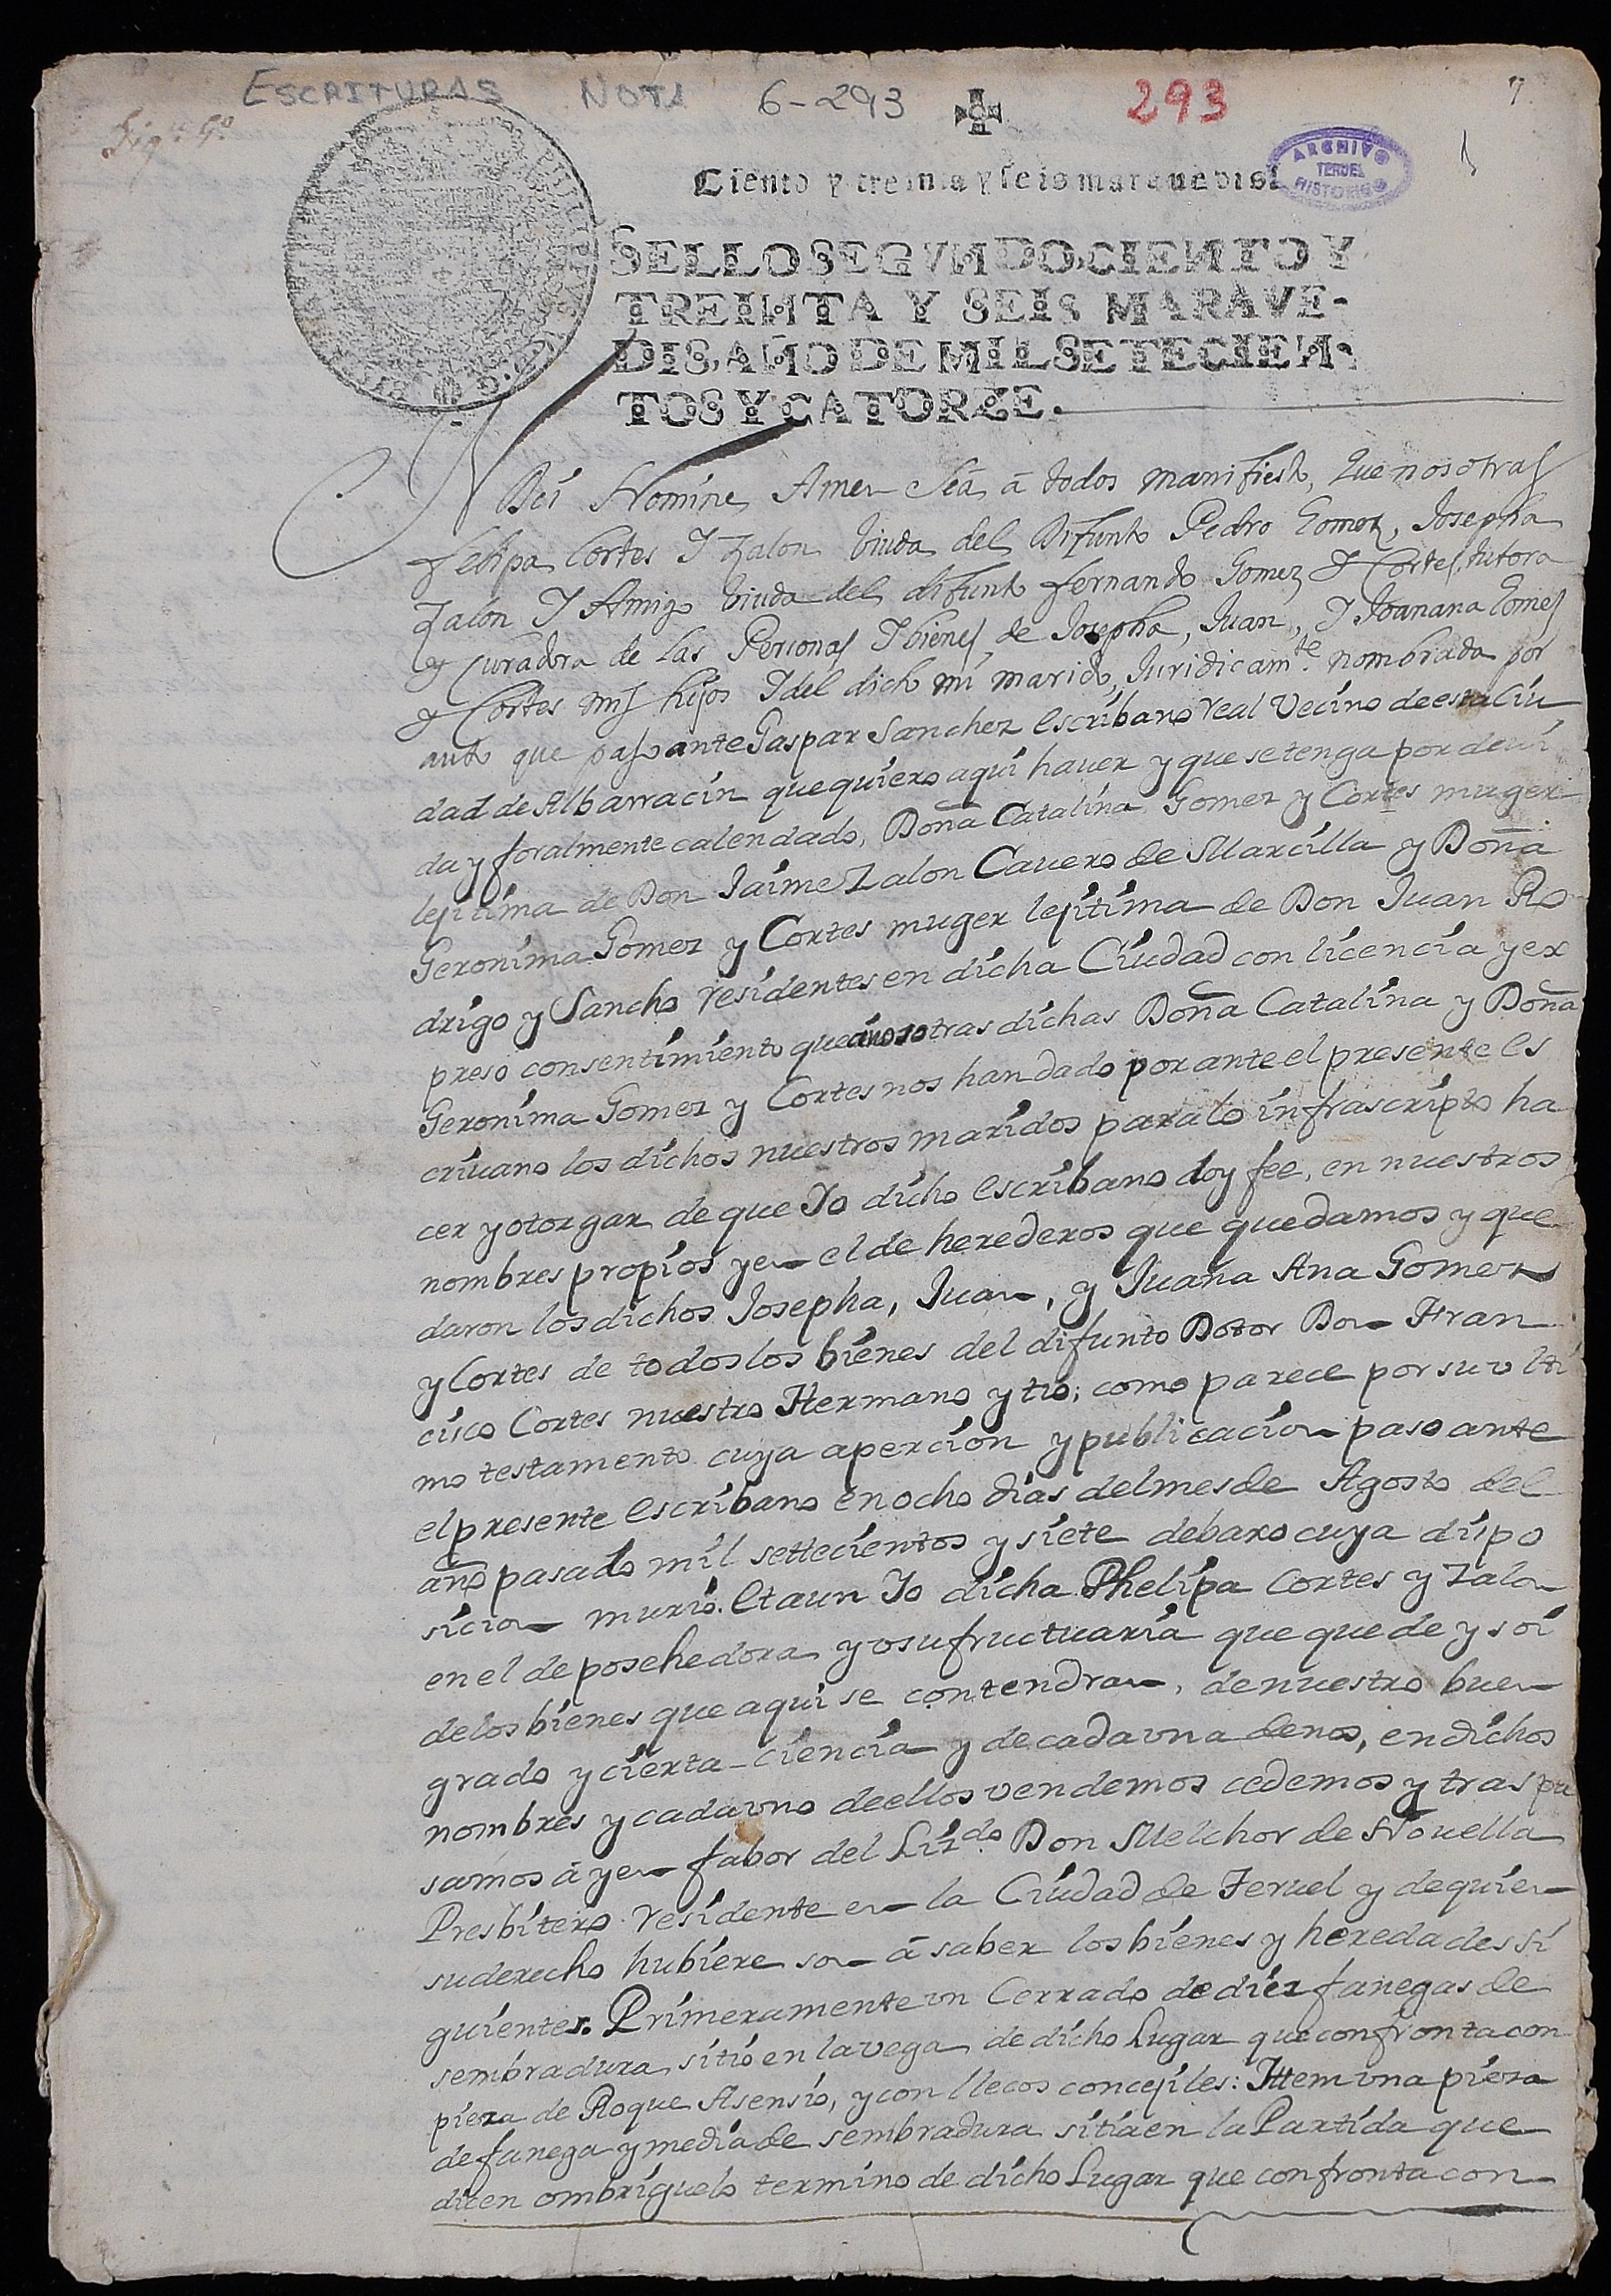 ESCRITURAS NOTA 6-293 293 7
Sig.ª 5º
1
Ciento y treinta y seis marauedis.
ARCHIVO
TERUEL
HISTORICO
PHILIPPVS
SELLO SEGVNDO, CIENTO Y
TREINTA Y SEIS MARAVE-
DIS, AÑO DE MIL SETECIEN-
TOS Y CATORZE.
In Dei Nomine Amen Sea a todos manifiesto, Que nosotras
Felipa Cortes Y Zalon biuda del Difunto Pedro Gomez, Josepha
Zalon Y Amigo biuda del difunto fernando Gomez & Cortes, tutora
& Curadora de las Personas Y bienes de Josepha, Juan, Y Joanana Gomez
& Cortes mis hijos Y del dicho mi marido, Juridicamte. nombrada por
auto que paso ante Gaspar Sanchez escribano real Vecino de esta Ciu
dad de Albarracin que quiero aqui hauer y que se tenga por deui
da y foralmente calendado, Doña Catalina Gomez y Cortes muger
lejitima de Don Jaime Zalon Cauero de Marcilla y Doña
Geronima Gomez y Cortes muger lejitima de Don Juan Ro
drigo y Sancho residentes en dicha Ciudad con licencia y ex
preso consentimiento que a nosotras dichas Doña Catalina y Doña
Geronima Gomez y Cortes nos han dado por ante el presente es
criuano los dichos nuestros maridos para lo infrascripto ha
cer y otorgar de que Yo dicho escribano doy fee, en nuestros
nombres propios y en el de herederos que quedamos y que
daron los dichos Josepha, Juan, y Juana Ana Gomez
y Cortes de todos los bienes del difunto Dotor Don Fran
cisco Cortes nuestro Hermano y tio; como parece por su vlti
mo testamento cuya apercion y publicacion paso ante
el presente escribano en ocho dias del mes de Agosto del
año pasado mil settecientos y siete debaxo cuya dispo
sicion murio. Et aun Yo dicha Phelipa Cortes y Zalon
en el de posehedora y vsufructuaria que quede y soi
de los bienes que aqui se contendran, de nuestro buen
grado y cierta ciencia y de cada vna de nos, en dichos
nombres y cada vno de ellos vendemos cedemos y traspa
samos a y en fabor del Lizdo. Don Melchor de Nouella
Presbitero residente en la Ciudad de Teruel y de quien
su derecho hubiere son a saber los bienes y heredades si
guientes. Primeramente vn Cerrado de diez fanegas de
sembradura sitio en la vega de dicho Lugar que confronta con
pieza de Roque Asensio, y con llecos concejiles: Ittem vna pieza
de fanega y media de sembradura sitia en la Partida que
dicen ombriguelo termino de dicho Lugar que confronta con